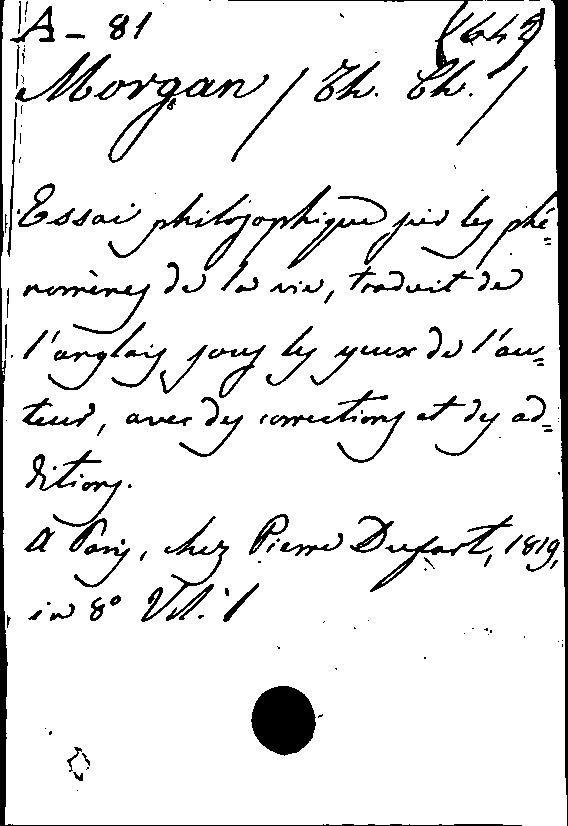 A - 81 (642)
Morgan / Th. Ch. /
Essai philosophique sur les phé=
nomènes de la vie, traduit de
l'anglais sous les yeux de l'au=
teur, avec des corrections et des ad=
ditions.
A Paris, chez Pierre Dufart, 1819,
in 8° Vol. 1